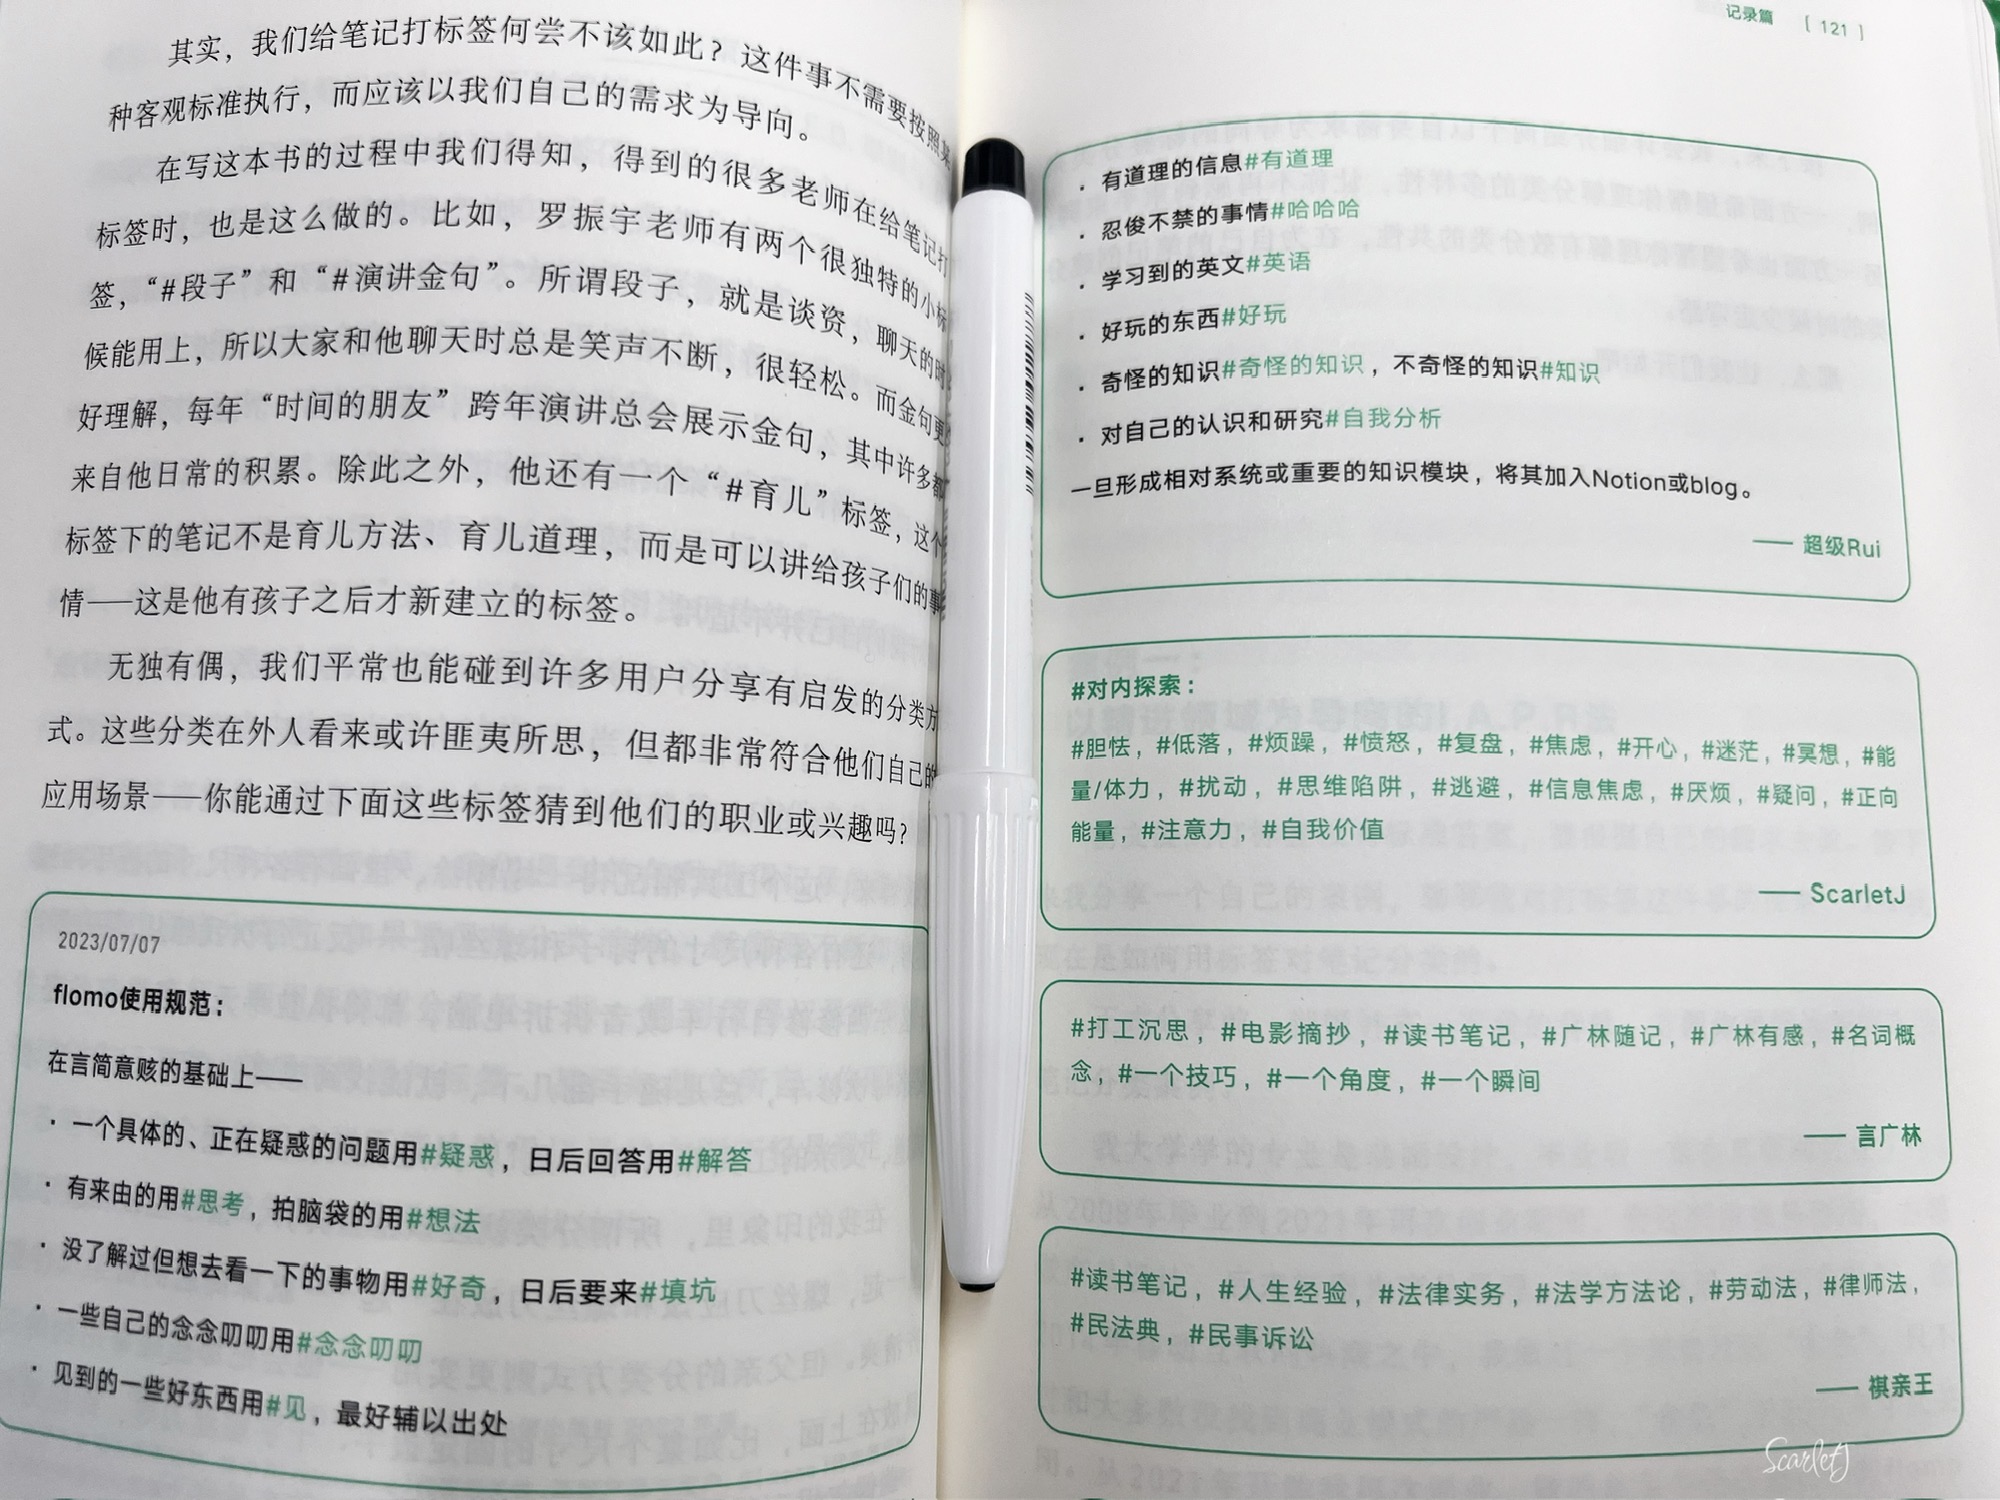 其实，我们给笔记打标签何尝不该如此？这件事不需要按照某
种客观标准执行，而应该以我们自己的需求为导向。
在写这本书的过程中我们得知，得到的很多老师在给笔记打
标签时，也是这么做的。比如，罗振宇老师有两个很独特的小标
签，“#段子”和“#演讲金句”。所谓段子，就是谈资，聊天的时
候能用上，所以大家和他聊天时总是笑声不断，很轻松。而金句更
好理解，每年“时间的朋友”跨年演讲总会展示金句，其中许多都
来自他日常的积累。除此之外，他还有一个“#育儿”标签，这个
标签下的笔记不是育儿方法、育儿道理，而是可以讲给孩子们的事
情——这是他有孩子之后才新建立的标签。
无独有偶，我们平常也能碰到许多用户分享有启发的分类方
式。这些分类在外人看来或许匪夷所思，但都非常符合他们自己的
应用场景——你能通过下面这些标签猜到他们的职业或兴趣吗？
2023/07/07
flomo使用规范：
在言简意赅的基础上——
· 一个具体的、正在疑惑的问题用#疑惑，日后回答用#解答
· 有来由的用#思考，拍脑袋的用#想法
· 没了解过但想去看一下的事物用#好奇，日后要来#填坑
· 一些自己的念念叨叨用#念念叨叨
· 见到的一些好东西用#见，最好辅以出处
记录篇 [ 121 ]
· 有道理的信息#有道理
· 忍俊不禁的事情#哈哈哈
· 学习到的英文#英语
· 好玩的东西#好玩
· 奇怪的知识#奇怪的知识，不奇怪的知识#知识
· 对自己的认识和研究#自我分析
一旦形成相对系统或重要的知识模块，将其加入Notion或blog。
—— 超级Rui
#对内探索：
#胆怯，#低落，#烦躁，#愤怒，#复盘，#焦虑，#开心，#迷茫，#冥想，#能
量/体力，#扰动，#思维陷阱，#逃避，#信息焦虑，#厌烦，#疑问，#正向
能量，#注意力，#自我价值
—— ScarletJ
#打工沉思，#电影摘抄，#读书笔记，#广林随记，#广林有感，#名词概
念，#一个技巧，#一个角度，#一个瞬间
—— 言广林
#读书笔记，#人生经验，#法律实务，#法学方法论，#劳动法，#律师法，
#民法典，#民事诉讼
—— 祺亲王
ScarletJ